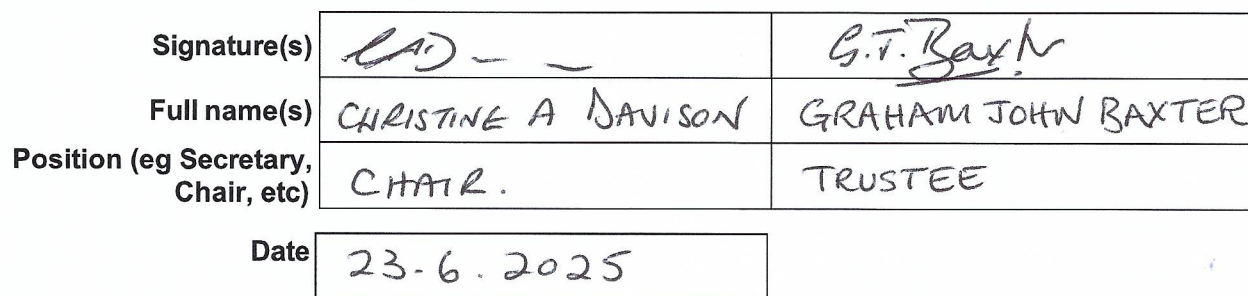 Signature(s) G.J. Baxter
Full name(s) CHRISTINE A DAVISON GRAHAM JOHN BAXTER
Position (eg Secretary,
Chair, etc) CHAIR. TRUSTEE
Date 23-6.2025